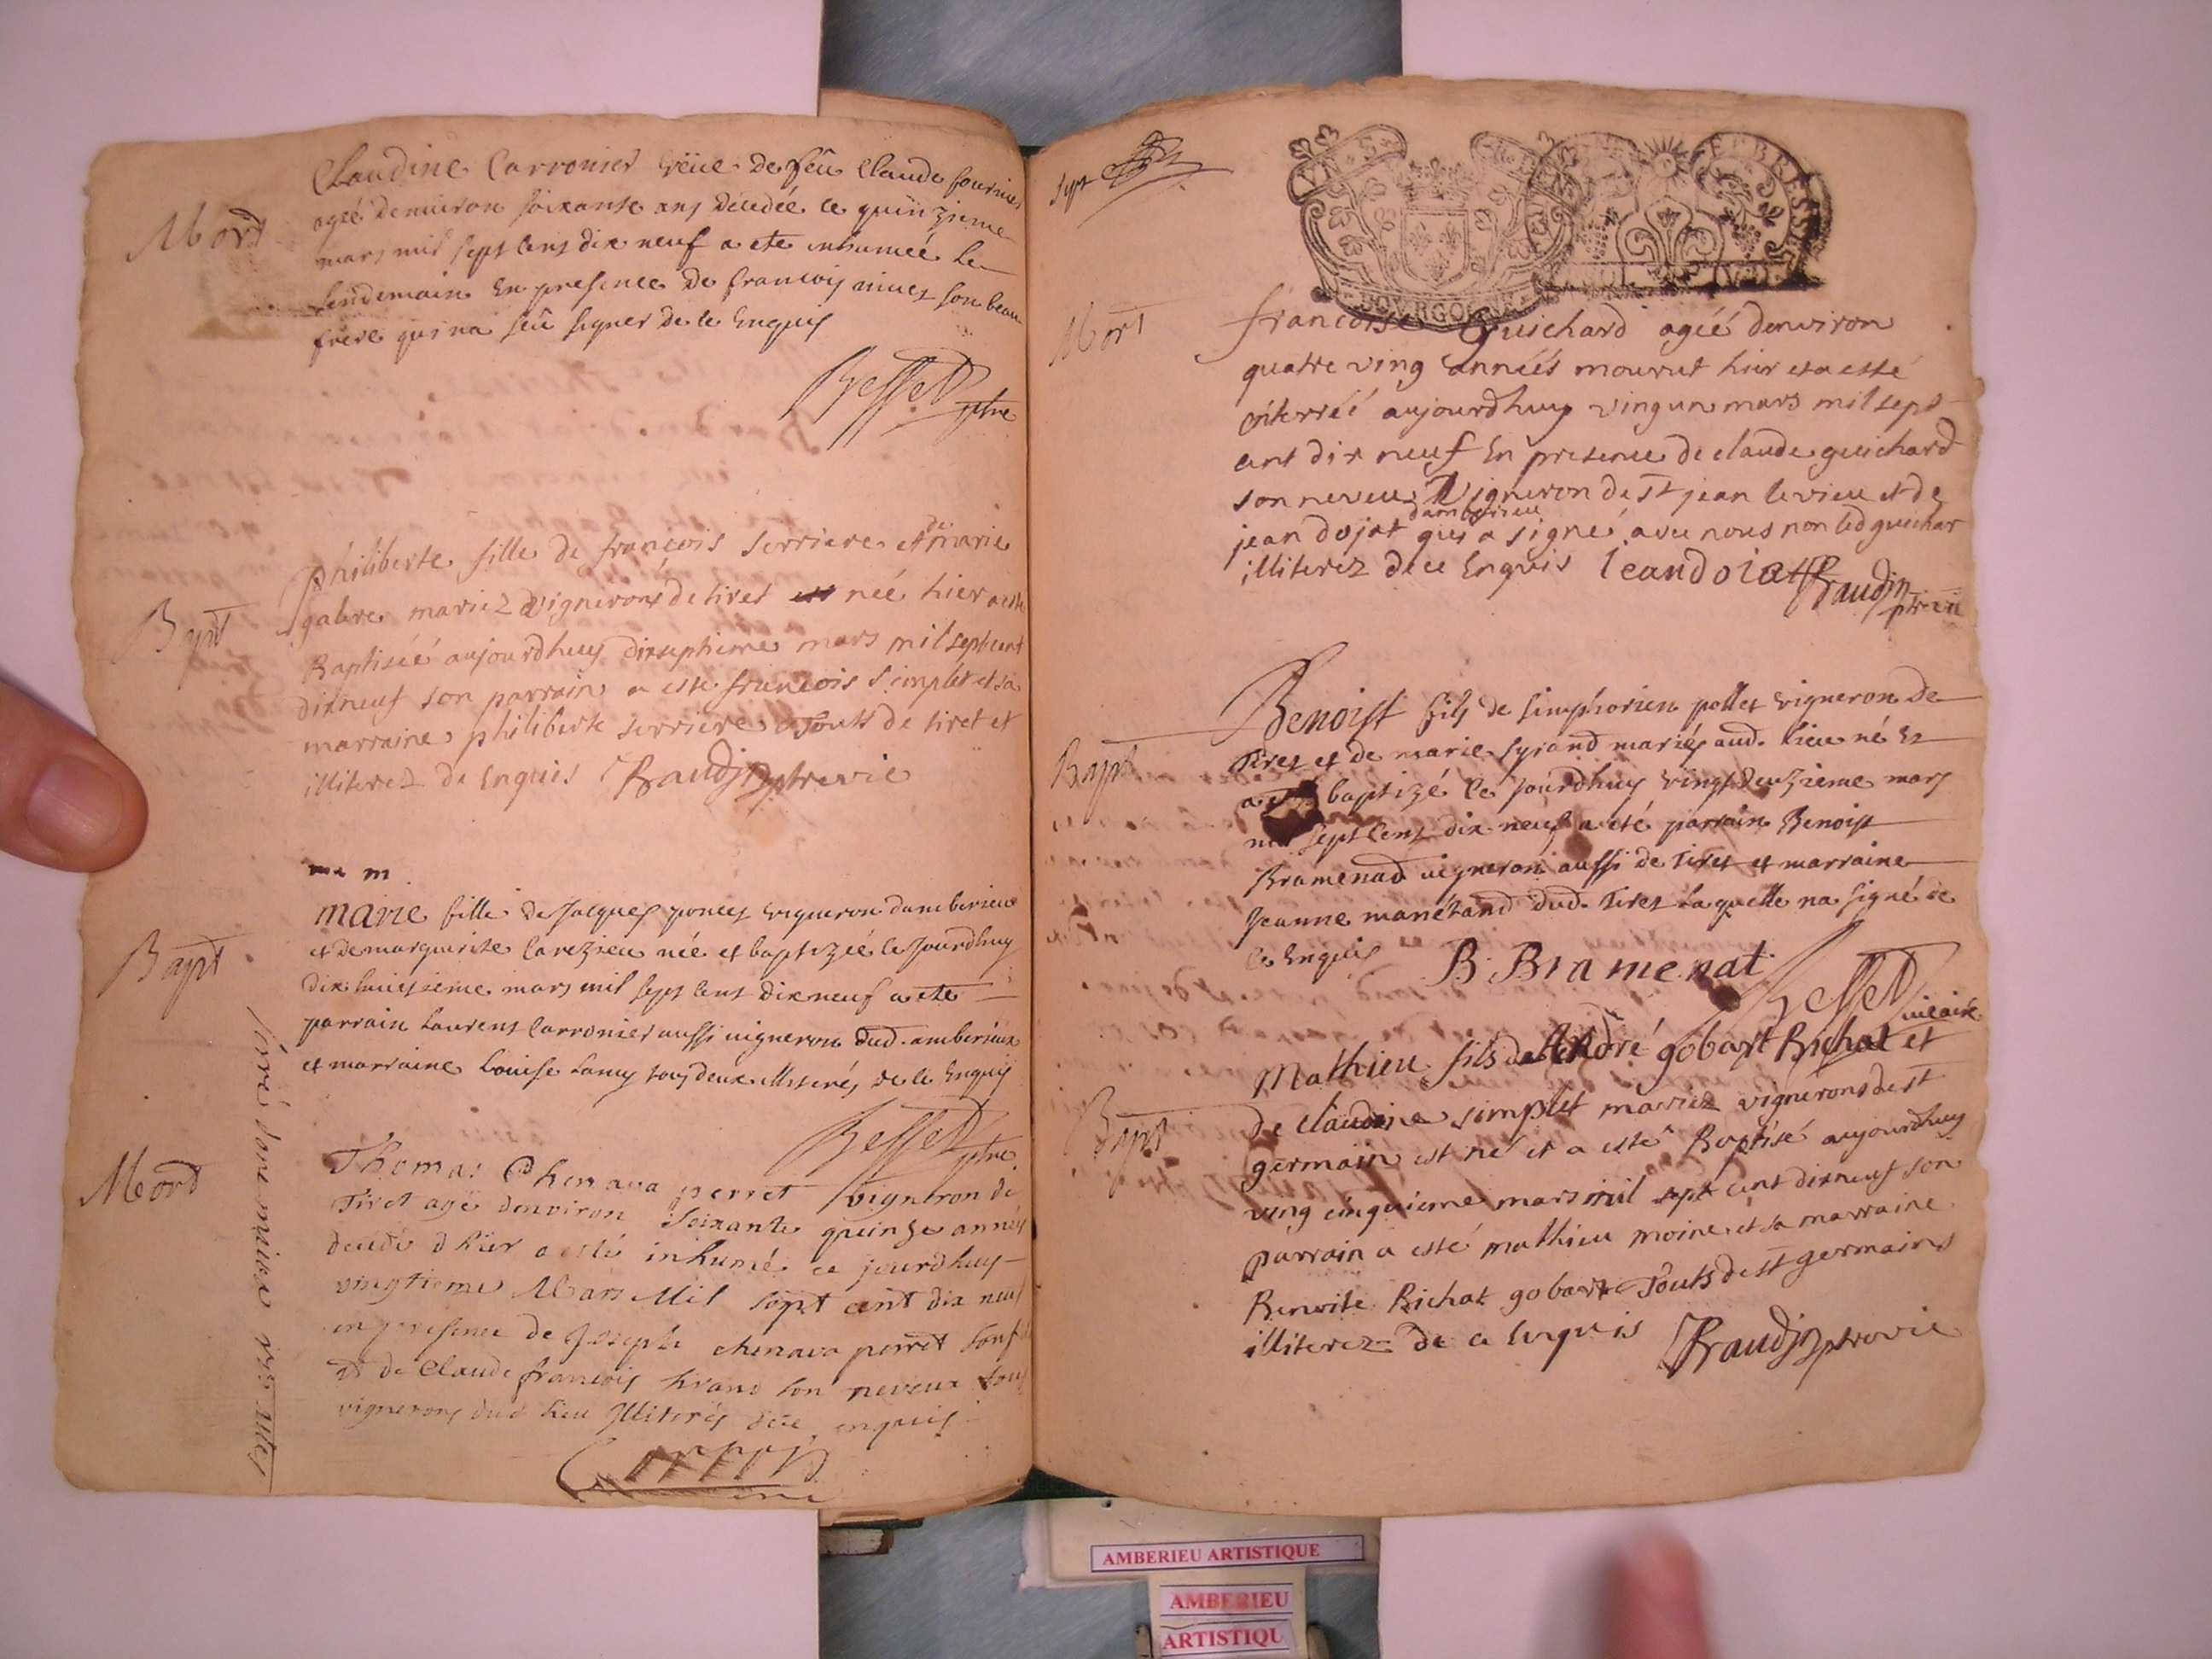 Mord
Claudine Carronier veüe de feü Claude fournier
ageé denuiron soixante ans décédée le quinzieme
mars mil sept cens dix neuf a ete inhumeé le
lendemain en presence de francois niuet son beau
frere qui na seü signer de ce enquis
Besset ptre
Bapt
philiberte fille de françois serriere et de marie
gabre mariez vignerons de tiret neé hier a esté
Baptiseé aujourdhuy dixseptieme mars mil sept cent
dixneuf son parrain a esté francois simplet et sa
marraine philiberte serriere touts de tiret et
illiterez de enquis Baudin ptre vic
Bapt
marie fille de Jacques poncet vigneron damberieu
et de marguerite Carezieu née et baptizeé ce jourdhuy
dix huitieme mars mil sept cens dix neuf a ete
parrain Laurens Carronier aussi uigneron dud. amberieux
et marraine Louise Lamy tous deux illiterés de ce enquis
Besset ptre
Mord
Thomas Chenaua perret vigneron de
Tiret agé denviron soixante quinze annés
decedé d hier a esté inhumé ce jourdhuy
vingtieme Mars Mil sept cent dix neuf
en presence de Joseph chenava perret son fils
et de Claude francois sirand son neveux tous
vignerons dud lieu Illiterés de ce enquis
sept
BOURGOGNE
ET BRESSE
Mort
francoise Guichard ageé denviron
quatre ving anneés mourut hier et a esté
enterreé aujourdhuy vingun mars mil sept
cent dix neuf en presence de claude guichard
son neveu vigneron de st jean le vieu et de
jean dojat damberieu qui a signé avec nous non led guichar
illiterez de ce enquis Jean doiat Baudin ptre vic
Bapt
Benoist fils de simphorien pollet vigneron de
Tiret et de marie syrand mariés aud. lieu né et
a ete baptizé ce jourdhuy vingt deuzieme mars
mil sept cens dix neuf a eté parrain Benoist
Bramenad uigneron aussi de tiret et marraine
Jeanne manétand dud. tiret laquelle na signé de
ce enquis B. Bramenat
Besset uicaire
Bapt
Mathieu fils de André gobart Richat et
de claudine simplet mariez vignerons de st
germain est né et a esté Baptisé aujourdhuy
ving cinquieme mars mil sept cent dixneuf son
parrain a esté mathieu moine et sa marraine
Benoite Richat gobart touts de st germains
illiterez de ce enquis Baudin ptre vic
AMBERIEU ARTISTIQUE
AMBERIEU
ARTISTIQU